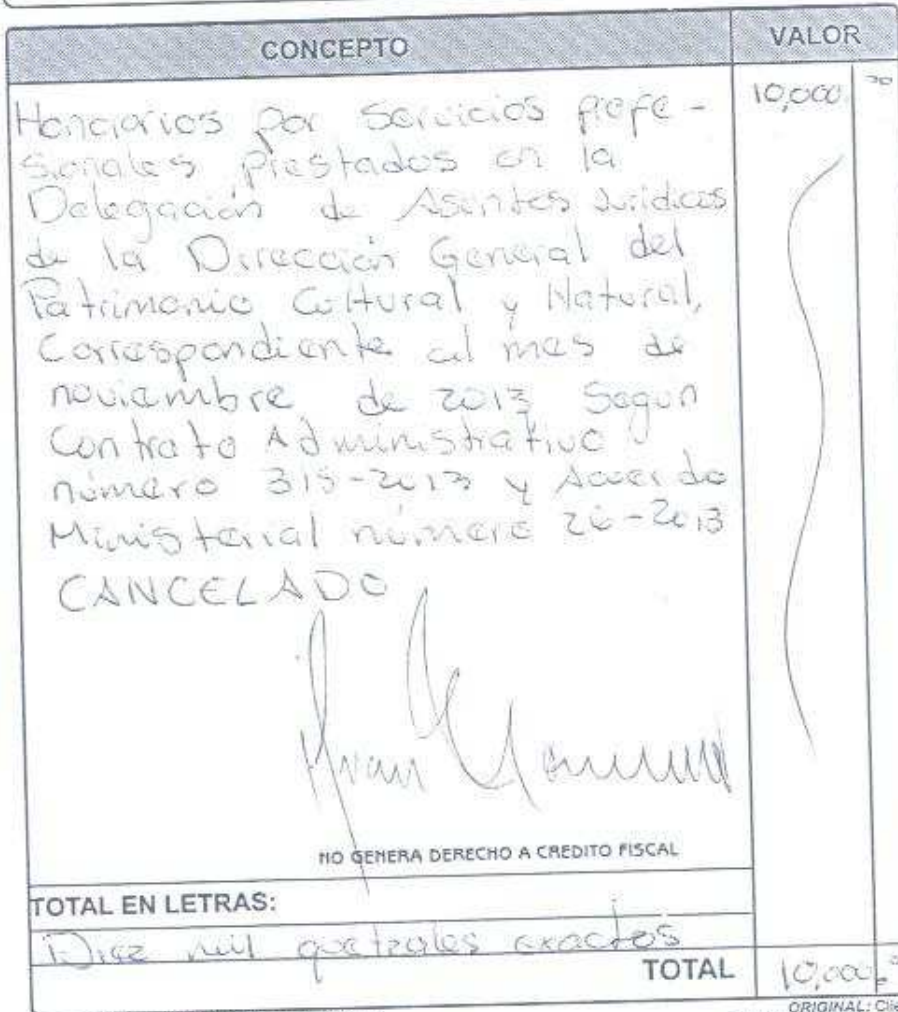 CONCEPTO VALOR
Honorarios por Servicios profe- 10,000 00
sionales prestados en la
Delegación de Asuntos Jurídicos
de la Dirección General del
Patrimonio Cultural y Natural,
Correspondiente al mes de
noviembre de 2013 Segun
Contrato Administrativo
número 315-2013 y Acuerdo
Ministerial número 26-2013
CANCELADO
NO GENERA DERECHO A CREDITO FISCAL
TOTAL EN LETRAS:
Diez mil quetzales exactos
TOTAL 10,000.00
ORIGINAL: Clie